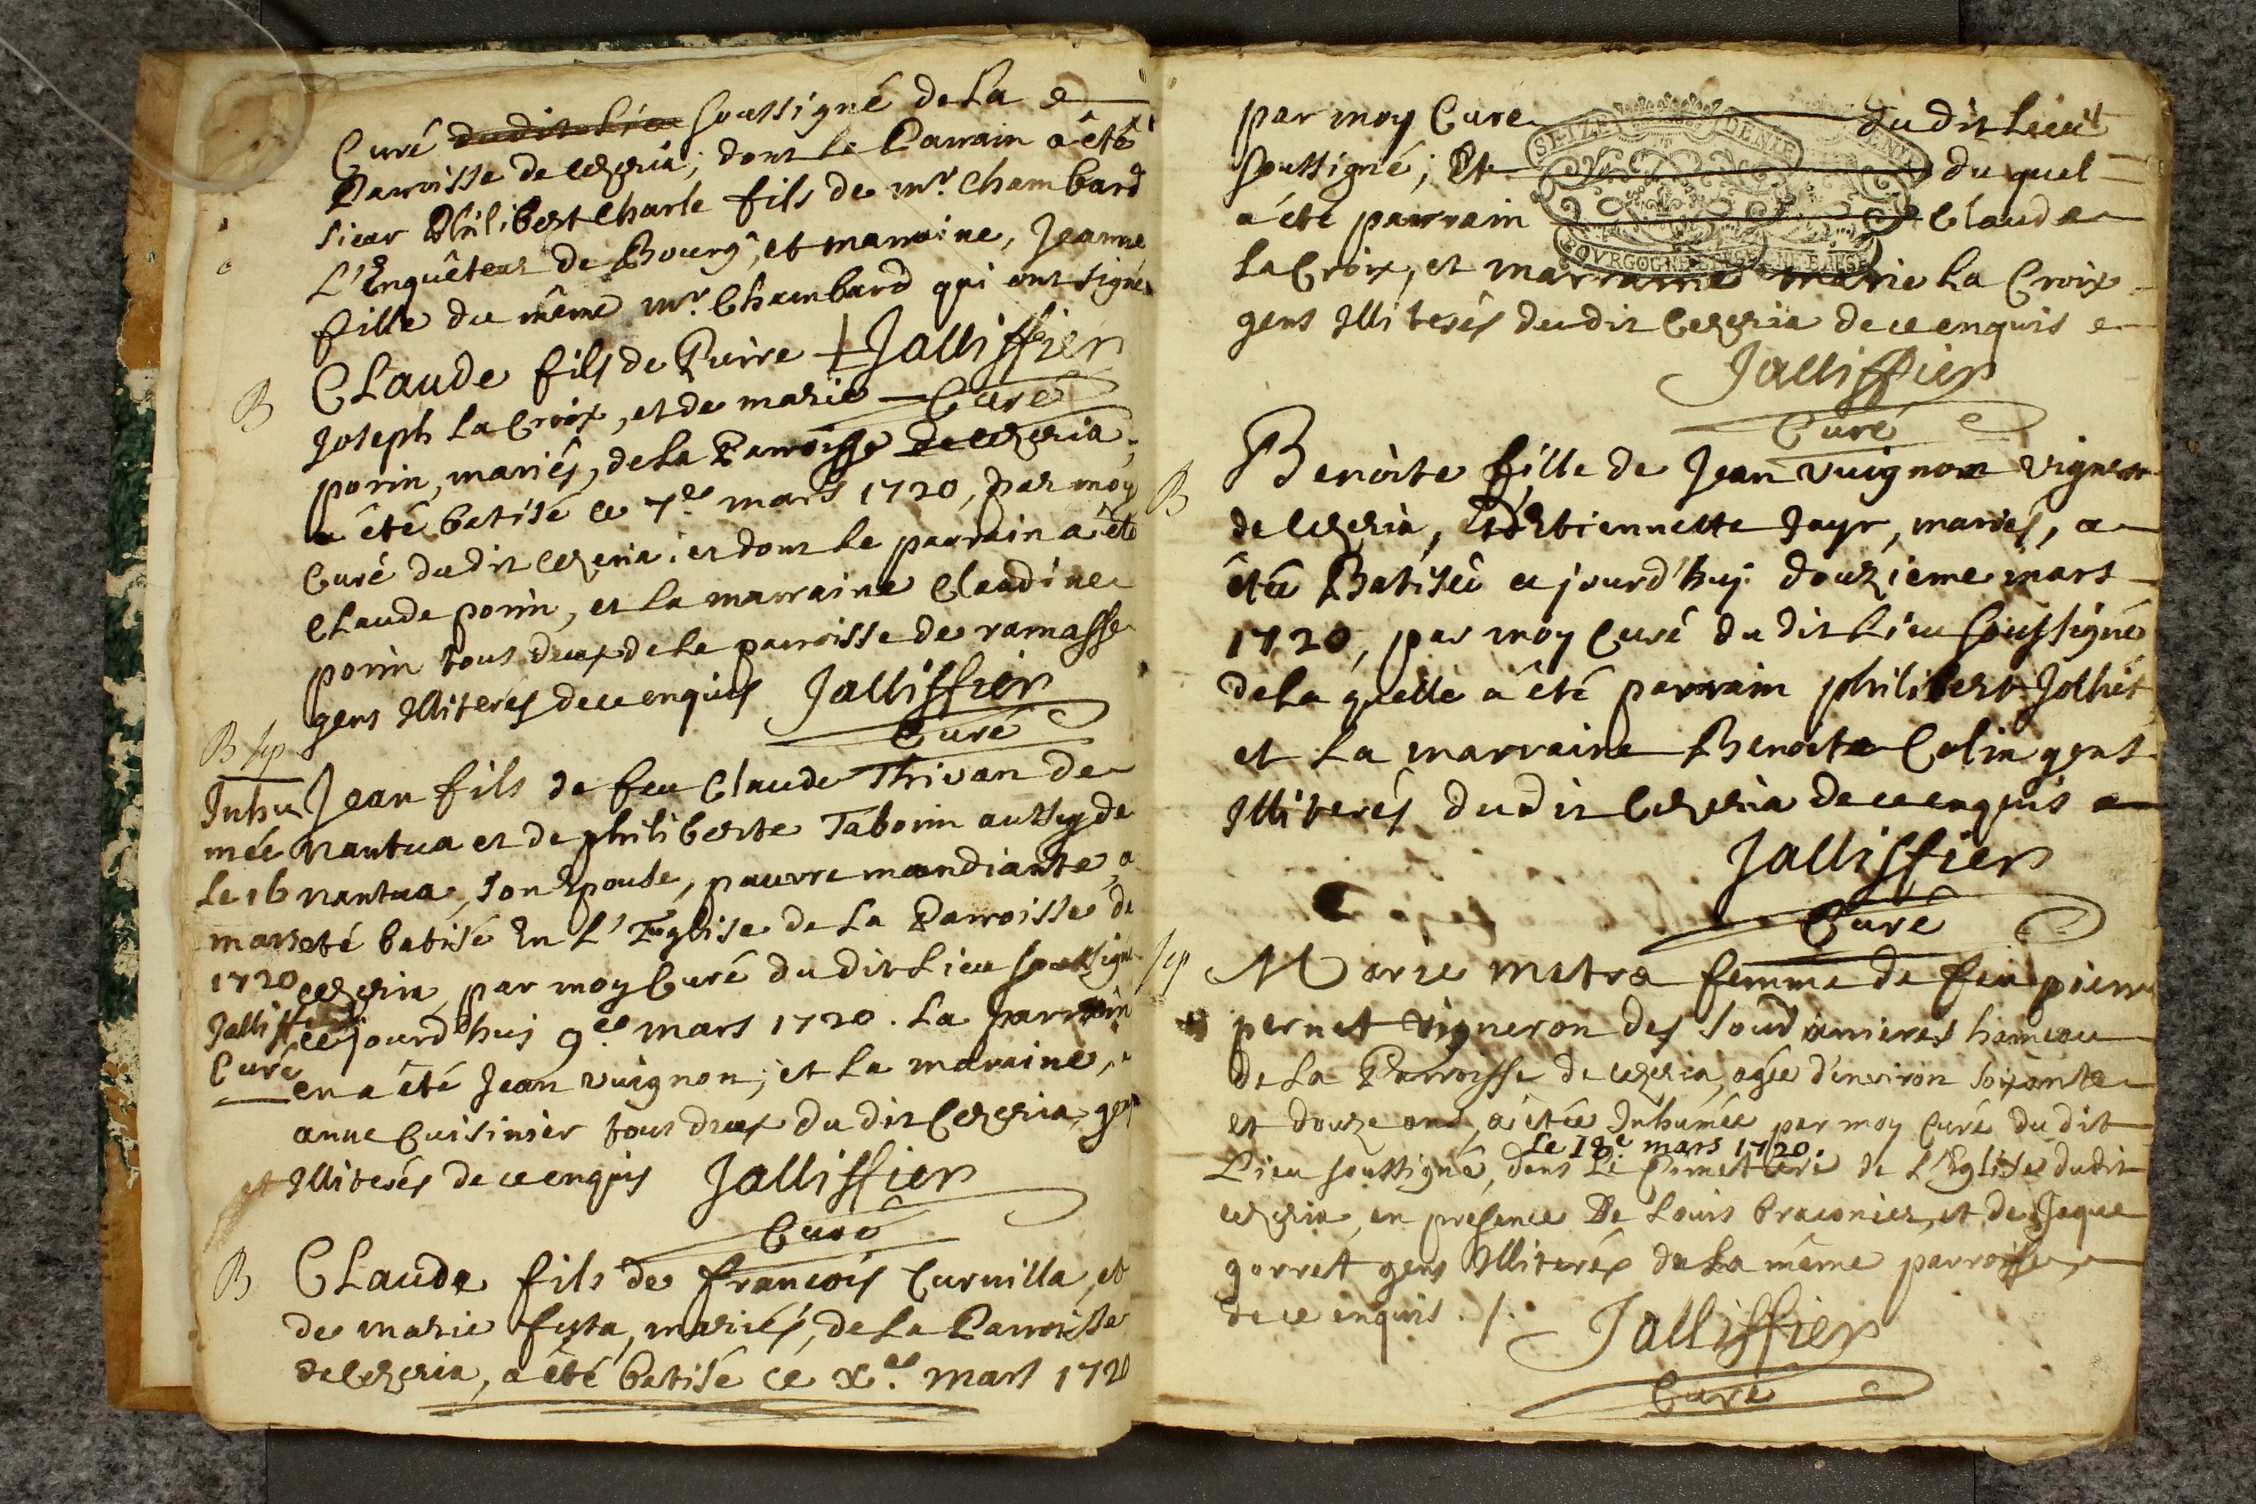 Curé du dit Lieu soussigné de La
Parroisse de Ceyzeria; dont Le Parrain a êté
sieur Philibert Charle fils de mr. Chambard
L'Enquêteur de Bourg, et marraine, Jeanne
fille du même mr. Chambard qui ont signé
Jalliffier
Curé
B
CLaude fils de Pierre
Joseph La Croix, et de marie
porin, mariés, de La Parroisse de Ceyzeria,
a êté batisé ce 7.e mars 1720, par moy
Curé du dit Ceyzeria; et dont Le parrain a êté
CLaude porin, et La marraine Claudine
porin tous deux de La parroisse de ramasse
gens Illiterés de ce enquis Jalliffier
Curé
B sep
Inhu
mée
Le 16
mars
1720
Jalliff
Curé
Jean fils de feu Claude Thivan de
Nantua et de philiberte Taborin aussy de
nantua, son Epouse, pauvre mandiante, a
eté batisé En L'Eglise de La Parroisse de
Ceyzeria, par moy Curé du dit Lieu soussigné
ce jourd'huj 9.e mars 1720. La parrain
en a êté Jean vuignon; et La maraine,
anne Cuisinier tous deux du dit Ceyzeria, gens
Illiterés de ce enquis Jalliffier
Curé
B
CLaude fils de francois Curnilla, et
de marie fyta, mariés, de La Parroisse
de Ceyzeria, a êté batisé ce x.e mars 1720
par moy Curé du dit Lieu
soussigné; Et du quel
a été parrain Claude
La Croix, et marraine marie La Croix
gens Illiterés du dit Ceyzeria de ce enquis
Jalliffier
Curé
SEIZE DENIE
BOURGOGNE
B
Benoite fille de Jean vuignon vigneron
de Ceyzeria, Et d'Etiennette Jayr, mariés, a
êtée Batisée ce jourd'huj douzieme mars
1720, par moy Curé du dit Lieu soussigné
de La quelle a êté parrain philibert Jolliet
et La marraine Benoite Colin gens
Illiterés du dit Ceyzeria de ce enquis
Jalliffier
Curé
sep
Marie mitra femme de feu pierre
pernet vigneron des soudanieres hameau
de La Parroisse de Ceyzeria, agée d'environ soixante
et douze ans, a êtée Inhumée par moy Curé du dit
Le 18.e mars 1720.
Lieu soussigné, dans Le Cimetiere de L'Eglise du dit
Ceyzeria, en presence De Louis braconier, et de Jaque
gorrett gens Illiterés de La même parroisse,
de ce enquis. Jalliffier
Curé